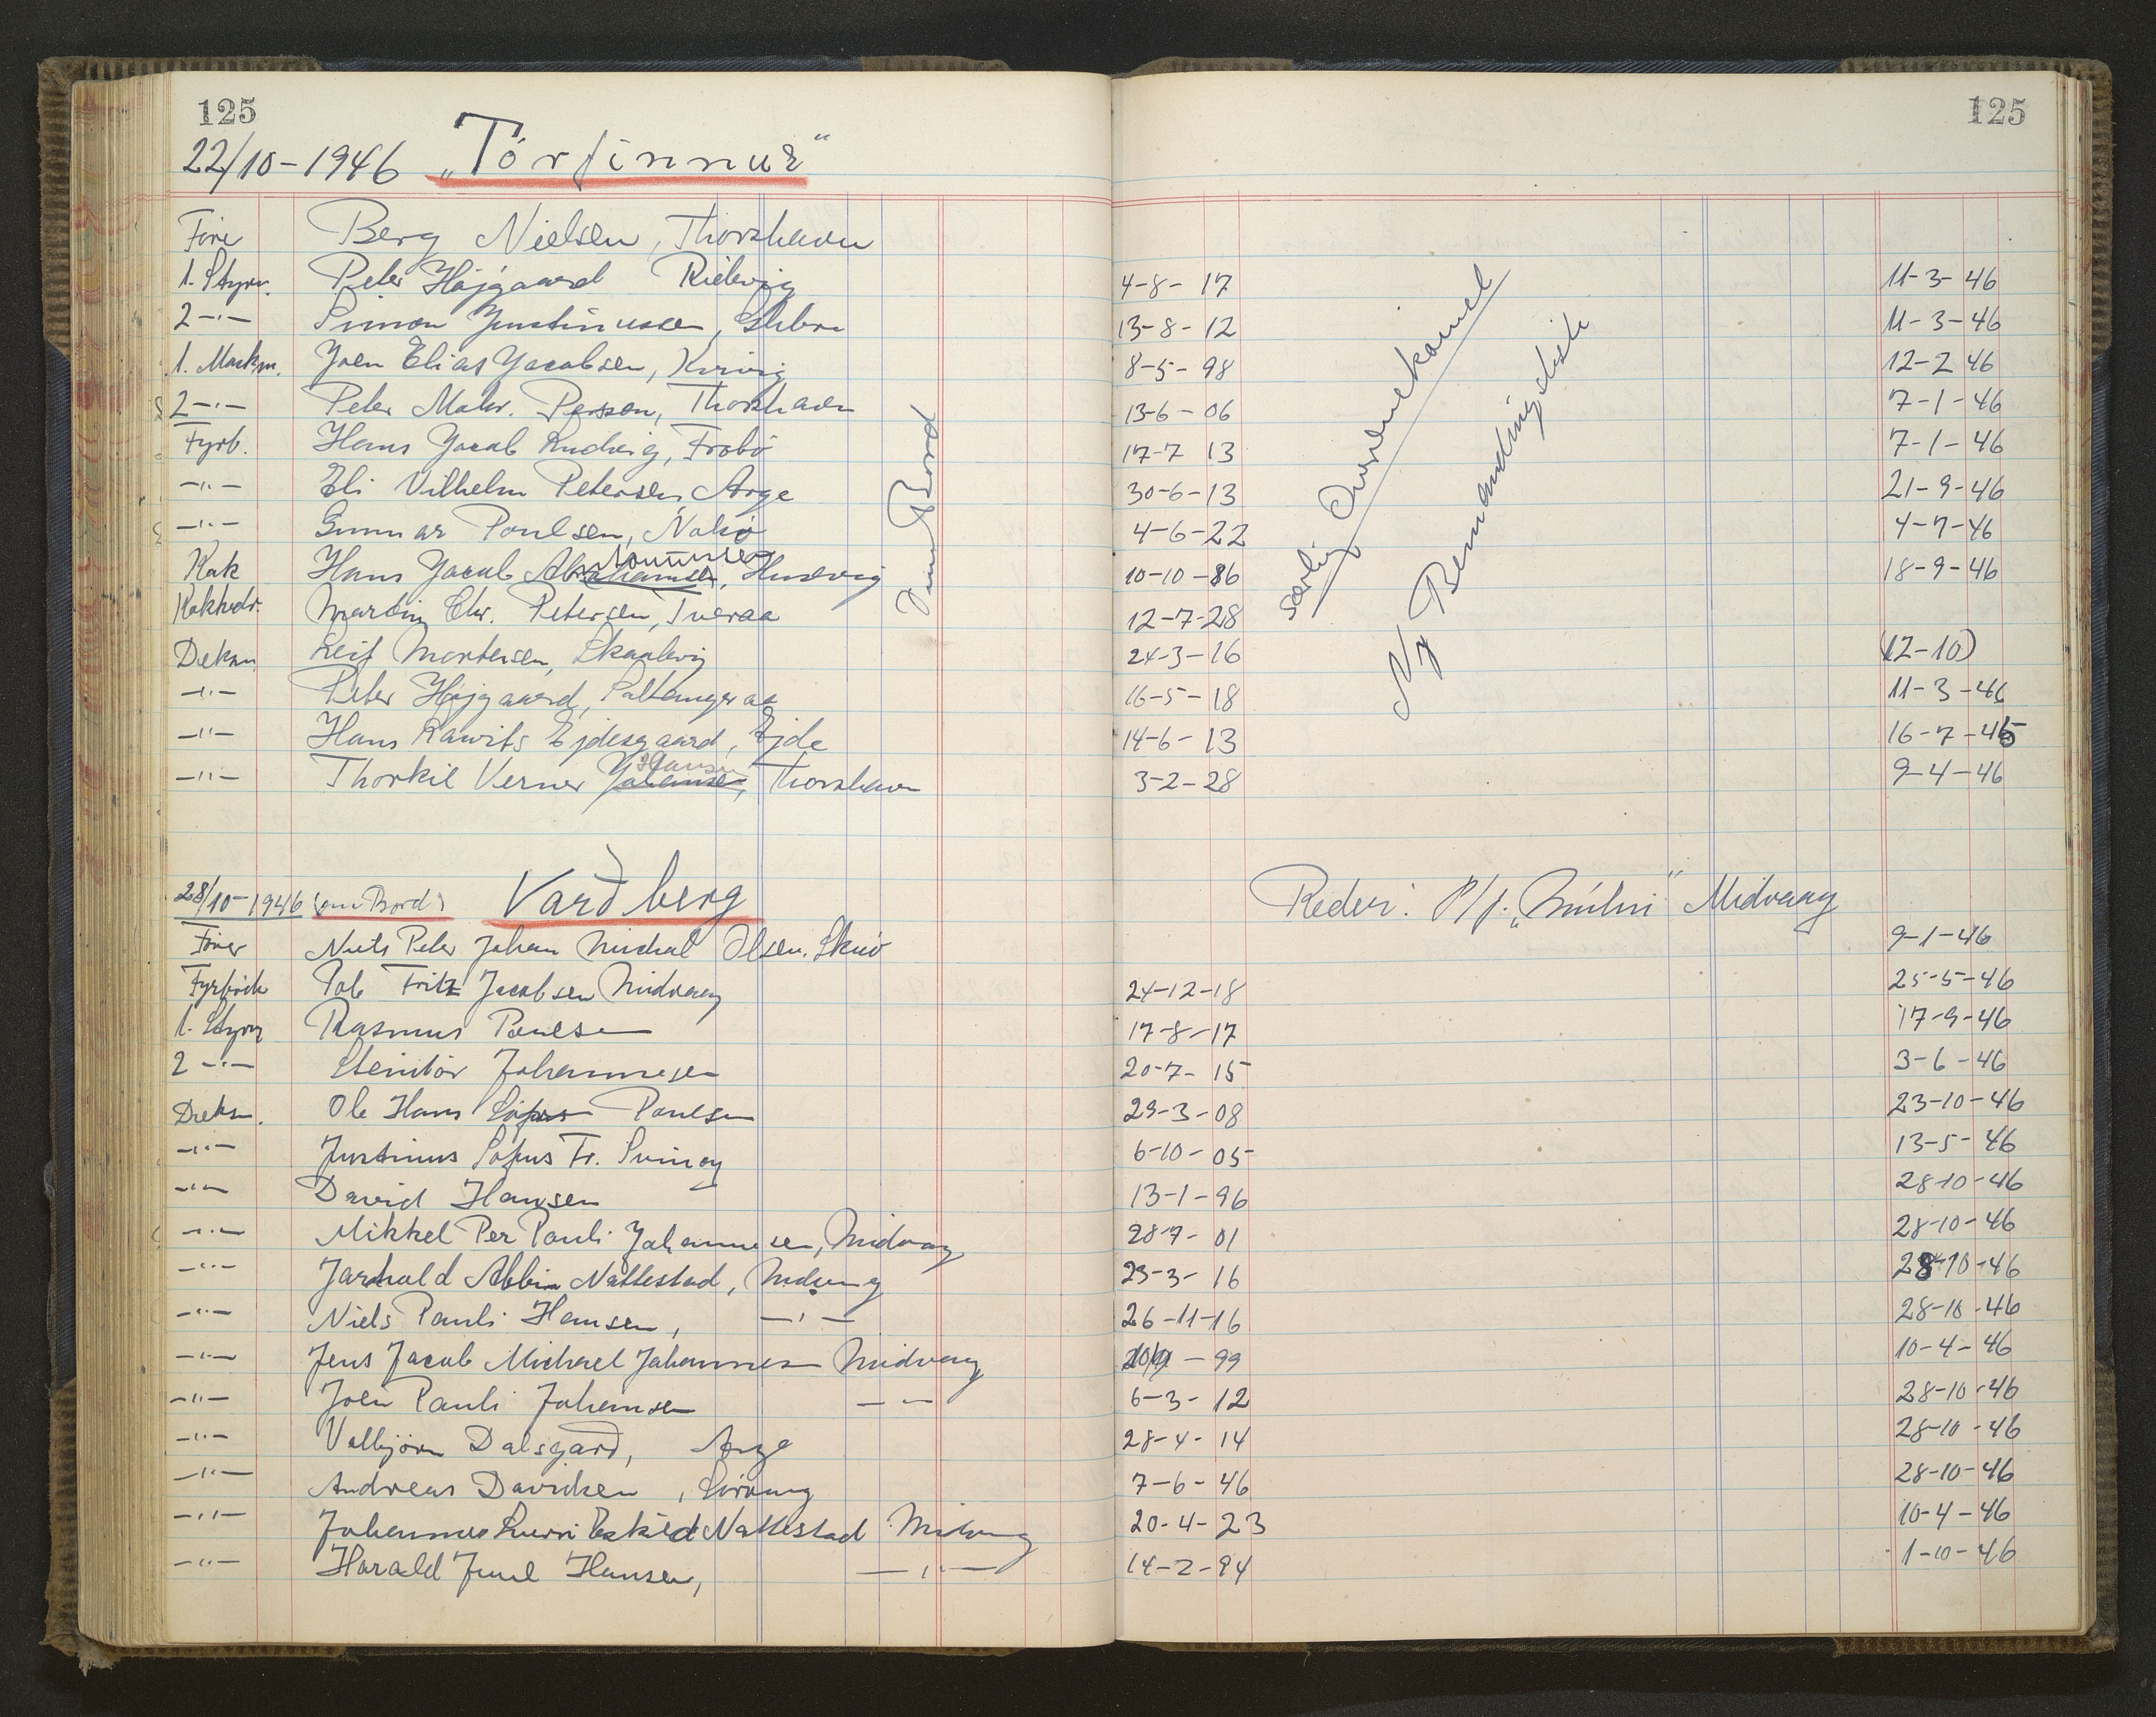 125 125
22/10-1946 „Tórfinnur“
Före Berg Nielsen, Thorshavn
1. Styrm. Peter Højgaard Rituvig 4-8-17 11-3-46
2-"- Simon Justinussen, 13-8-12 11-3-46
1. Maskm. Joen Elias Jacobsen, Kvivig 8-5-98 12-2 46
2-"- Peter Mohr. Person, Thorshavn 13-6-06 7-1-46
Fyrb. Hans Jacob Ludvig, Frobø 17-7 13 7-1-46
-"- Eli Vilhelm Petersen Arge 30-6-13 21-9-46
-"- Gunnar Poulsen, Nolsø 4-6-22 4-7-46
Kok Hans Jacob, Husevig 10-10-86 18-9-46
Koksmdr. Martin Chr. Petersen, Tveraa 12-7-28
Dæksm. Leif Mortensen, Skaalevig 24-3-16 (12-10)
-"- Peter Højgaard, Saltangeraa 16-5-18 11-3-46
-"- Hans Rawits Ejdesgaard, Ejde 14-6-13 16-7-45
-"- Thorkil Verner Johansen Hansen, Thorshavn 3-2-28 9-4-46
om Bord
særlig
Ny Bemandingsliste
28/10-1946 (om Bord) Varðberg Rederi: P/f. „Múlin“ Midvaag
Fører Niels Peter Johan Michal Olsen. Skuø 9-1-46
Fyrbøde Pole Fritz Jacobsen Midvaag 24-12-18 25-5-46
1. Styrm Rasmus Poulsen 17-8-17 17-9-46
2-"- Steintór Johannesen 20-7-15 3-6-46
Dæksm. Ole Hans Sofus Poulsen 29-3-08 23-10-46
-"- Justinus Sofus Fr. Svinoy 6-10-05 13-5-46
-"- David Hansen 13-1-96 28-10-46
-"- Mikkel Per Pauli Johannesen, Midvaag 28-7-01 28-10-46
-"- Jarhald Albin Nattestad, Midvaag 23-3-16 28-10-46
-"- Niels Pauli Hansen, -"- 26-11-16 28-10-46
-"- Jens Jacob Michael Johannesen Midvaag -99 10-4-46
-"- Joen Pauli Johansen -"- 6-3-12 28-10-46
-"- Valbjörn Dalsgarð, Arge 28-4-14 28-10-46
-"- Andreas Davidsen, Sörvaag 7-6-46 28-10-46
-"- Johannes Eskild Nattestad Midvaag 20-4-23 10-4-46
-"- Harald Juul Hansen, -"- 14-2-94 1-10-46